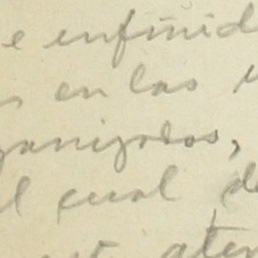 e infinid
en las
ganizados,
l cual d
aten